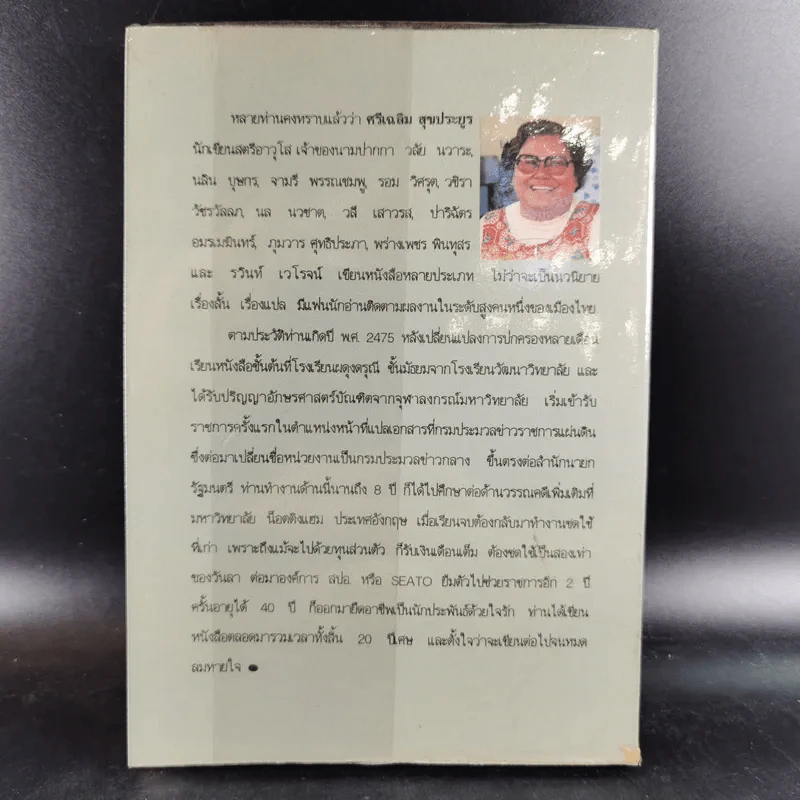 หลายท่านคงทราบแล้วว่า ศรีเฉลิม สุขประยูร
นักเขียนสตรีอาวุโส เจ้าของนามปากกา วลัย นวาระ,
นลิน บุษกร, จามรี พรรณชมพู, รอม วิศรุต, วชิรา
วัชรวัลลภ, นล นวชาต, วสี เสาวรส, ปาริฉัตร
อมรเมฆินทร์, ภุมวาร ศุทธิประภา, พร่างเพชร พินทุสร
และ รวินท์ เวโรจน์ เขียนหนังสือหลายประเภท ไม่ว่าจะเป็นนวนิยาย
เรื่องสั้น เรื่องแปล มีแฟนนักอ่านติดตามผลงานในระดับสูงคนหนึ่งของเมืองไทย
ตามประวัติท่านเกิดปี พ.ศ. 2475 หลังเปลี่ยนแปลงการปกครองหลายเดือน
เรียนหนังสือชั้นต้นที่โรงเรียนผดุงดรุณี ชั้นมัธยมจากโรงเรียนวัฒนาวิทยาลัย และ
ได้รับปริญญาอักษรศาสตร์บัณฑิตจากจุฬาลงกรณ์มหาวิทยาลัย เริ่มเข้ารับ
ราชการครั้งแรกในตำแหน่งหน้าที่แปลเอกสารที่กรมประมวลข่าวราชการแผ่นดิน
ซึ่งต่อมาเปลี่ยนชื่อหน่วยงานเป็นกรมประมวลข่าวกลาง ขึ้นตรงต่อสำนักนายก
รัฐมนตรี ท่านทำงานด้านนี้นานถึง 8 ปี ก็ได้ไปศึกษาต่อด้านวรรณคดีเพิ่มเติมที่
มหาวิทยาลัย น็อตติงแฮม ประเทศอังกฤษ เมื่อเรียนจบต้องกลับมาทำงานชดใช้
ที่เก่า เพราะถึงแม้จะไปด้วยทุนส่วนตัว ก็รับเงินเดือนเต็ม ต้องชดใช้เป็นสองเท่า
ของวันลา ต่อมาองค์การ สปอ. หรือ SEATO ยืมตัวไปช่วยราชการอีก 2 ปี
ครั้นอายุได้ 40 ปี ก็ออกมายึดอาชีพเป็นนักประพันธ์ด้วยใจรัก ท่านได้เขียน
หนังสือตลอดมารวมเวลาทั้งสิ้น 20 ปีเศษ และตั้งใจว่าจะเขียนต่อไปจนหมด
ลมหายใจ